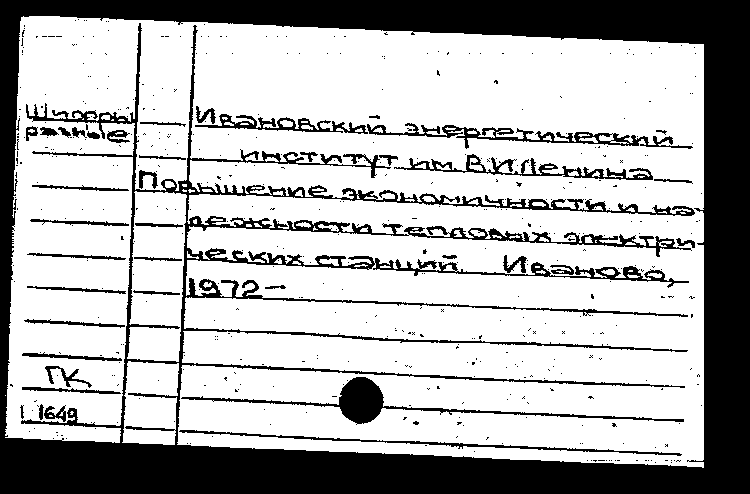 Шифры
разные
Ивановский энергетический
институт им. В.И.Ленина
Повышение экономичности и на-
дежности тепловых электри-
ческих станций. Иваново,
1972-
ГК
1649